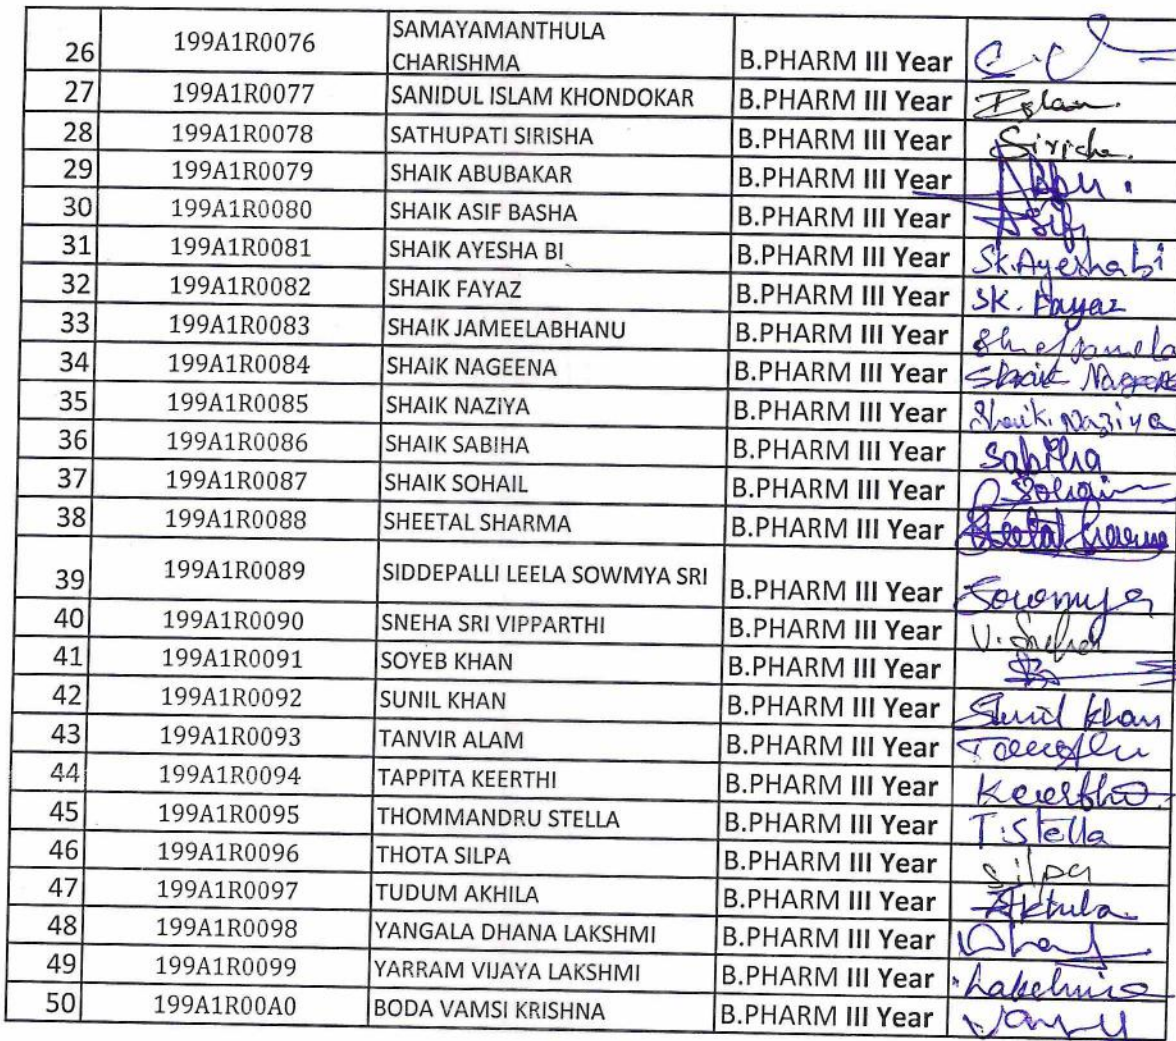 26 199A1R0076 SAMAYAMANTHULA CHARISHMA B.PHARM III Year
27 199A1R0077 SANIDUL ISLAM KHONDOKAR B.PHARM III Year Islam.
28 199A1R0078 SATHUPATI SIRISHA B.PHARM III Year
29 199A1R0079 SHAIK ABUBAKAR B.PHARM III Year
30 199A1R0080 SHAIK ASIF BASHA B.PHARM III Year Asif
31 199A1R0081 SHAIK AYESHA BI B.PHARM III Year SK.Ayeshabi
32 199A1R0082 SHAIK FAYAZ B.PHARM III Year SK. Fayaz
33 199A1R0083 SHAIK JAMEELABHANU B.PHARM III Year
34 199A1R0084 SHAIK NAGEENA B.PHARM III Year Shaik
35 199A1R0085 SHAIK NAZIYA B.PHARM III Year Shaik. Naziya
36 199A1R0086 SHAIK SABIHA B.PHARM III Year Sabiha
37 199A1R0087 SHAIK SOHAIL B.PHARM III Year
38 199A1R0088 SHEETAL SHARMA B.PHARM III Year Sheetal Sharma
39 199A1R0089 SIDDEPALLI LEELA SOWMYA SRI B.PHARM III Year Sowmya
40 199A1R0090 SNEHA SRI VIPPARTHI B.PHARM III Year V. Sneha
41 199A1R0091 SOYEB KHAN B.PHARM III Year
42 199A1R0092 SUNIL KHAN B.PHARM III Year Sunil Khan
43 199A1R0093 TANVIR ALAM B.PHARM III Year
44 199A1R0094 TAPPITA KEERTHI B.PHARM III Year Keerthi
45 199A1R0095 THOMMANDRU STELLA B.PHARM III Year T.Stella
46 199A1R0096 THOTA SILPA B.PHARM III Year Silpa
47 199A1R0097 TUDUM AKHILA B.PHARM III Year
48 199A1R0098 YANGALA DHANA LAKSHMI B.PHARM III Year
49 199A1R0099 YARRAM VIJAYA LAKSHMI B.PHARM III Year
50 199A1R00A0 BODA VAMSI KRISHNA B.PHARM III Year